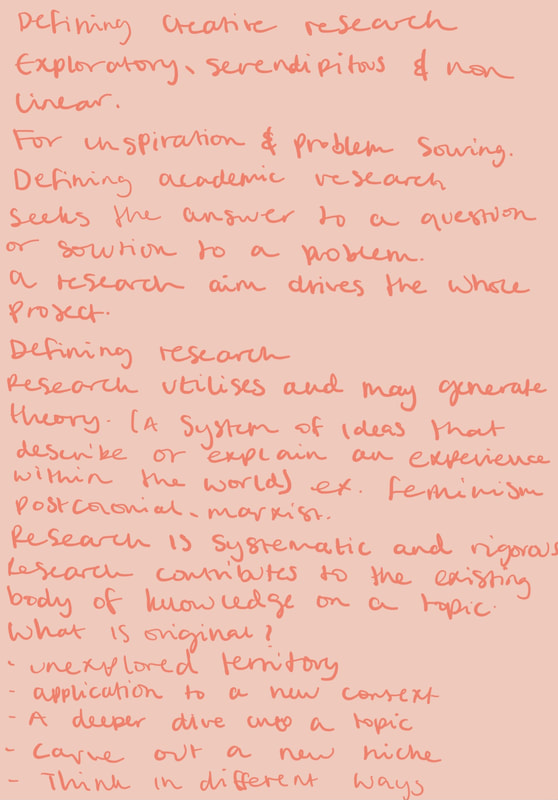 Defining creative research
Exploratory, serendipitous & non
linear.
For inspiration & problem sowing.
Defining academic research
seeks the answer to a question
or solution to a problem.
a research aim drives the whole
project.
Defining research
Research utilises and may generate
theory. (A system of ideas that
describe or explain an experience
within the world) ex. feminism
postcolonial, marxist.
Research is systematic and rigorous
Research contributes to the existing
body of knowledge on a topic.
What is original?
- unexplored territory
- application to a new context
- A deeper dive into a topic
- Carve out a new niche
- Think in different ways